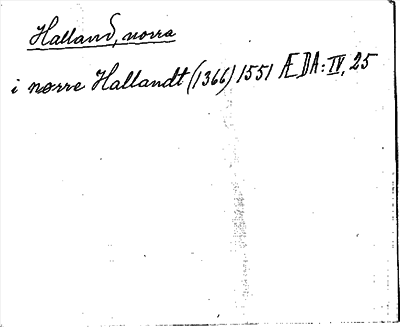 Halland, norra
i nørre Hallandt (1366) 1551 ÆDA: IV, 25